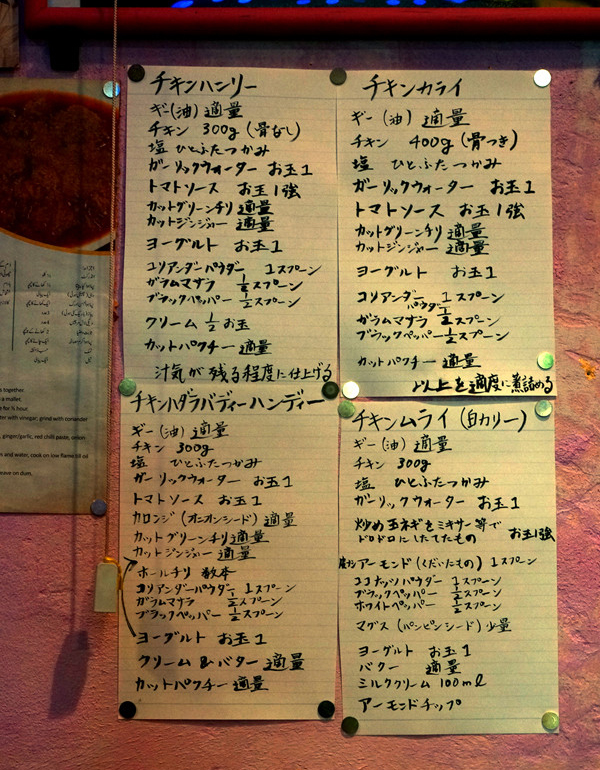 チキンハンリー
ギー(油) 適量
チキン 300g (骨なし)
塩 ひとふたつかみ
ガーリックウォーター お玉1
トマトソース お玉1強
カットグリーンチリ 適量
カットジンジャー 適量
ヨーグルト お玉1
コリアンダーパウダー 1スプーン
ガラムマサラ 1/2スプーン
ブラックペッパー 1/2スプーン
クリーム 1/2お玉
カットパクチー 適量
汁気が残る程度に仕上げる
チキンカライ
ギー (油) 適量
チキン 400g (骨つき)
塩 ひとふたつかみ
ガーリックウォーター お玉1
トマトソース お玉1強
カットグリーンチリ 適量
カットジンジャー 適量
ヨーグルト お玉1
コリアンダーパウダー 1スプーン
ガラムマサラ 1/2スプーン
ブラックペッパー 1/2スプーン
カットパクチー 適量
以上を適度に煮詰める
チキンハダラバディーハンディー
ギー(油) 適量
チキン 300g
塩 ひとふたつかみ
ガーリックウォーター お玉1
トマトソース お玉1
カロンジ (オニオンシード) 適量
カットグリーンチリ 適量
カットジンジャー 適量
ホールチリ 数本
コリアンダーパウダー 1スプーン
ガラムマサラ 1/2スプーン
ブラックペッパー 1/2スプーン
ヨーグルト お玉1
クリーム&バター 適量
カットパクチー 適量
チキンムライ (白カリー)
ギー(油) 適量
チキン 300g
塩 ひとふたつかみ
ガーリックウォーター お玉1
炒め玉ネギをミキサー等で
ドロドロにしたてたもの お玉1強
アーモンド (くだいたもの) 1スプーン
ココナッツパウダー 1スプーン
ブラックペッパー 1/2スプーン
ホワイトペッパー 1/2スプーン
マグス (パンピンシード) 少量
ヨーグルト お玉1
バター 適量
ミルククリーム 100ml
アーモンドチップ
s together.
a mallet.
e for ½ hour.
ter with vinegar, grind with coriander
, ginger/garlic, red chilli paste, onion
s and water, cook on low flame till oil
eave on dum.